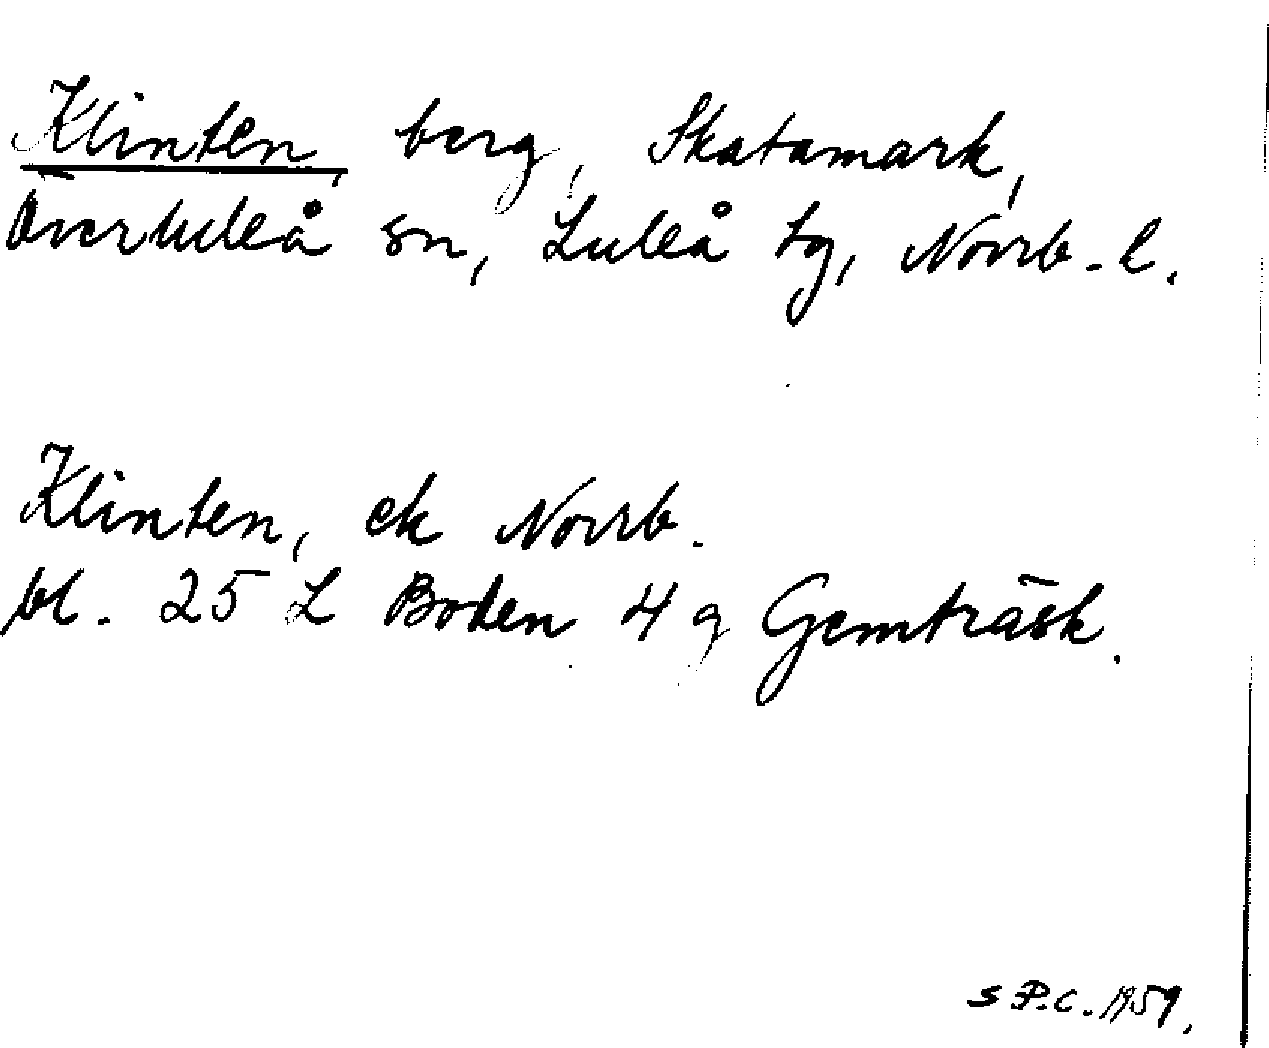 Klinten, berg, Skatamark,
Överluleå sn, Luleå tg, Norrb-l.
Klinten, ek Norrb.
bl. 25 L Boden 4 g Gemträsk.
S P.C. 1959.